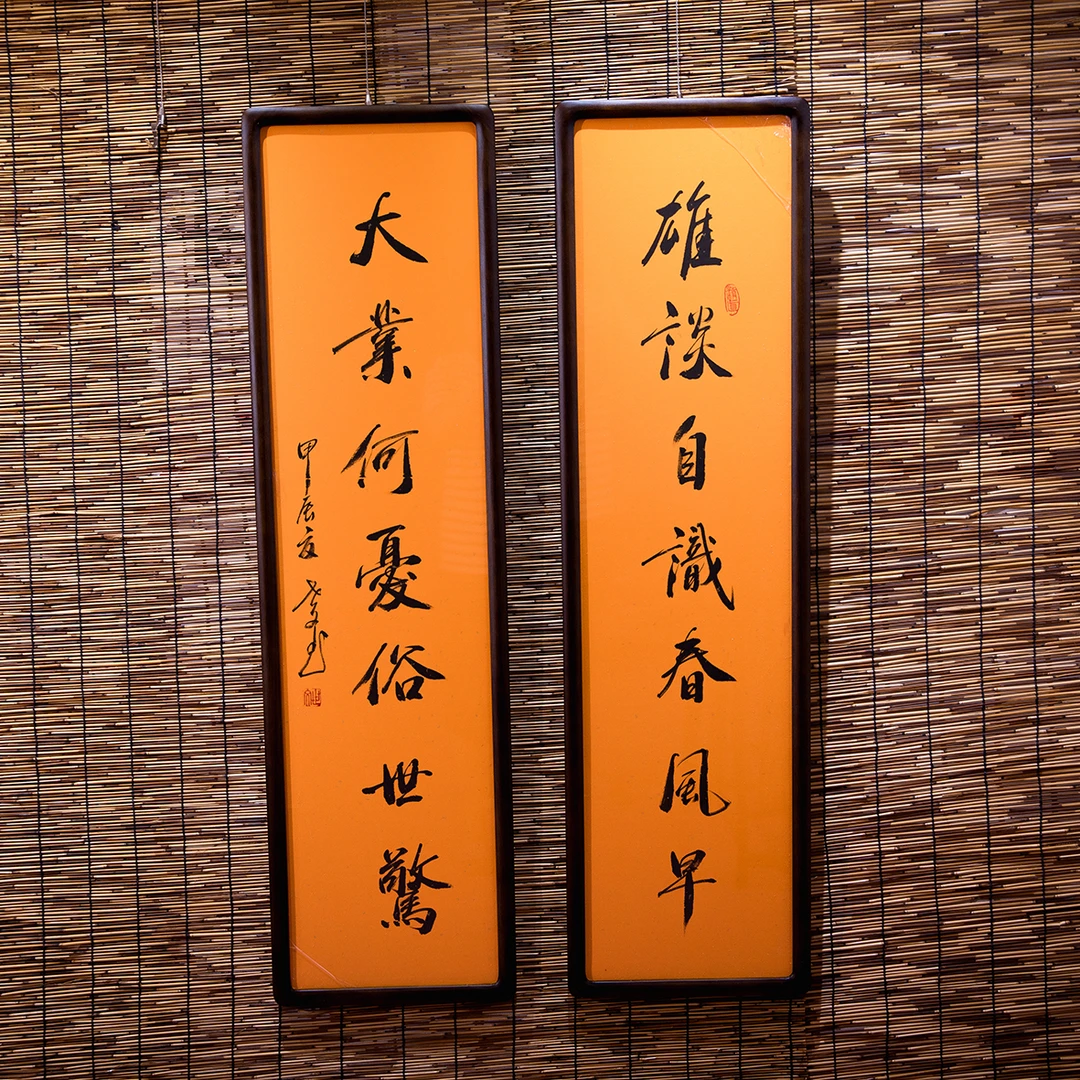 雄談自識春風早
大業何憂俗世驚
甲辰夏